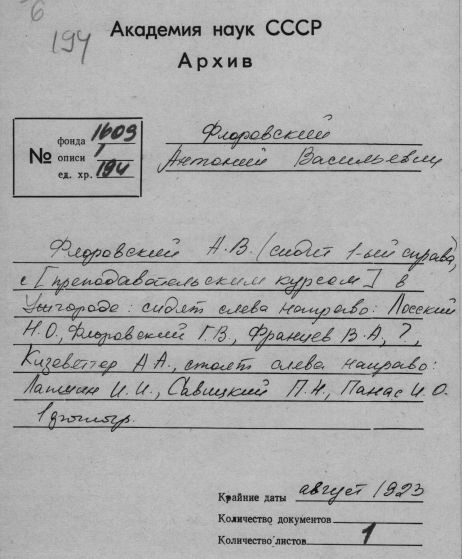 6
194
Академия наук СССР
Архив
№
фонда 1609
описи 1
ед. хр. 194
Флоровский
Антоний Васильевич
Флоровский А.В. (сидит 1-ый справа)
с [преподавательским курсом] в
Ужгороде: сидят слева направо: Лосский
Н.О., Флоровский Г.В., Францев В.А., ?,
Кизеветтер А.А., стоят слева направо:
Лапшин И.И., Савицкий П.Н., Панас И.О.
1 фотогр.
Крайние даты август 1923
Количество документов
Количество листов 1